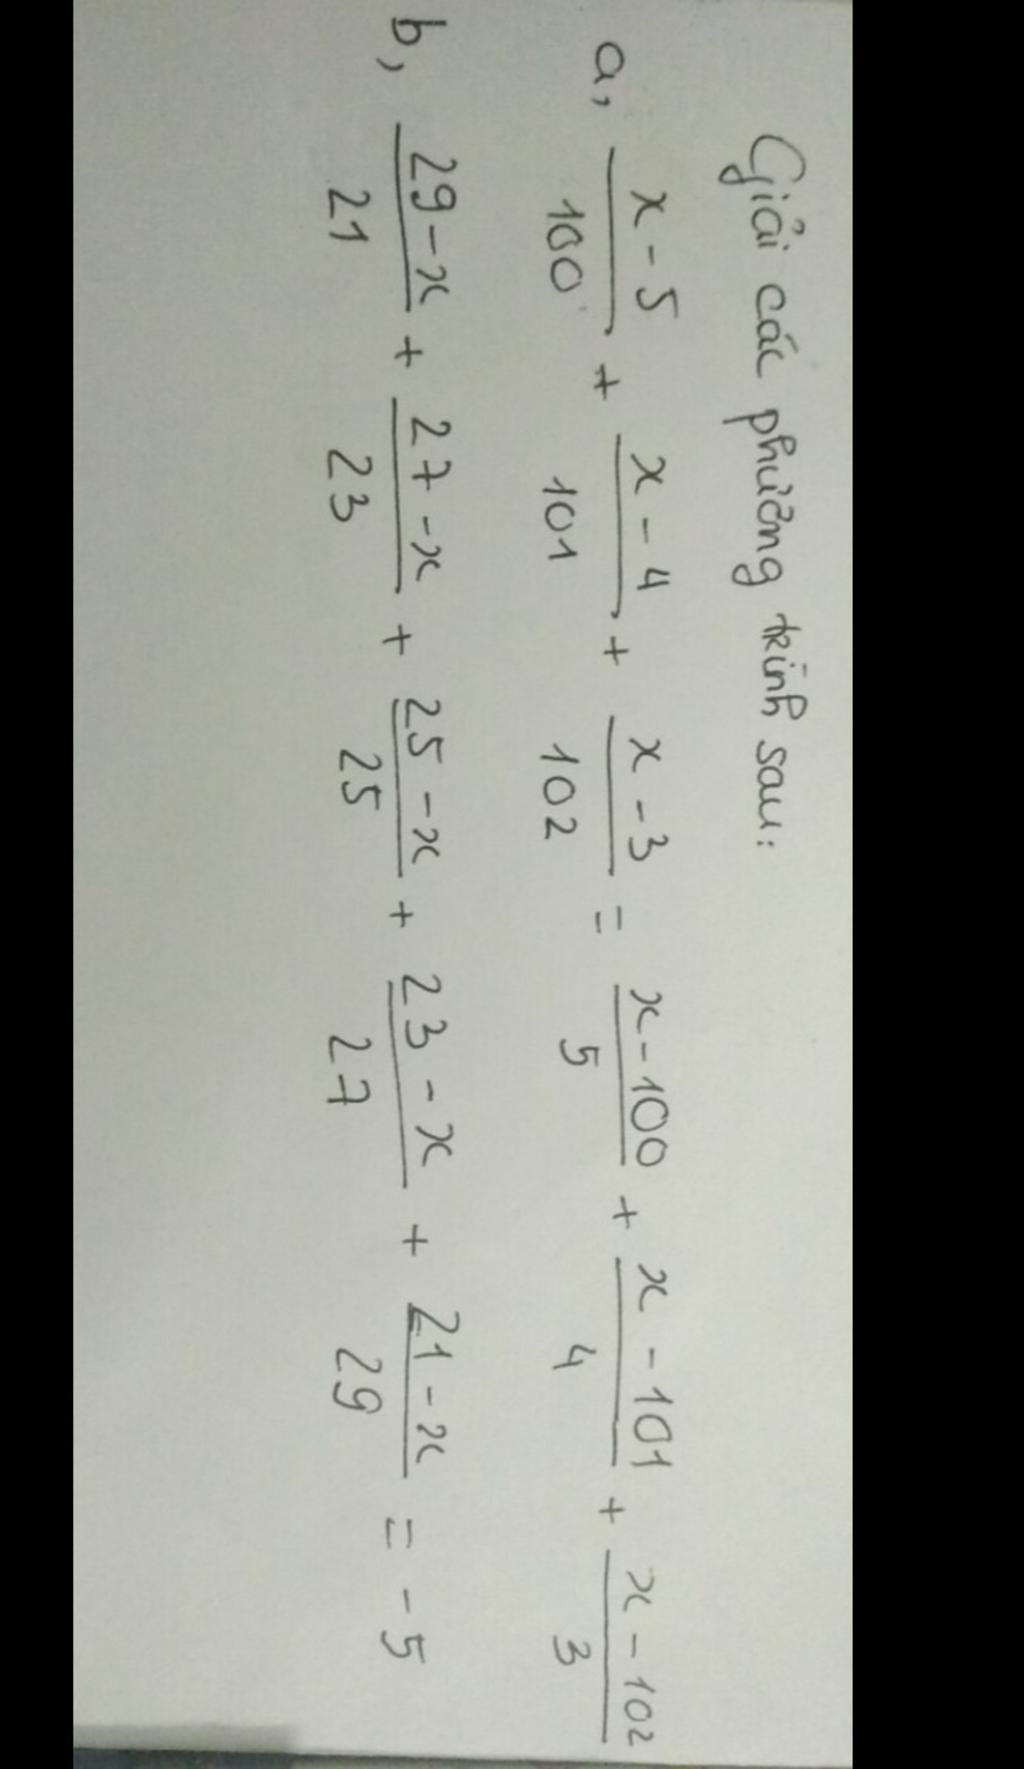 Giải các phương trình sau:
a, \frac{x-5}{100} + \frac{x-4}{101} + \frac{x-3}{102} = \frac{x-100}{5} + \frac{x-101}{4} + \frac{x-102}{3}
b, \frac{29-x}{21} + \frac{27-x}{23} + \frac{25-x}{25} + \frac{23-x}{27} + \frac{21-x}{29} = -5